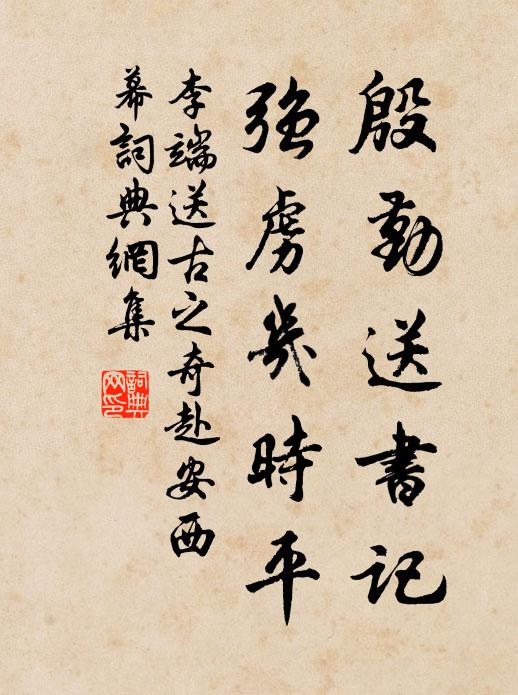 殷勤送書記
強虜幾時平
李端送古之奇赴安西
幕詞典網集
詞典
网印